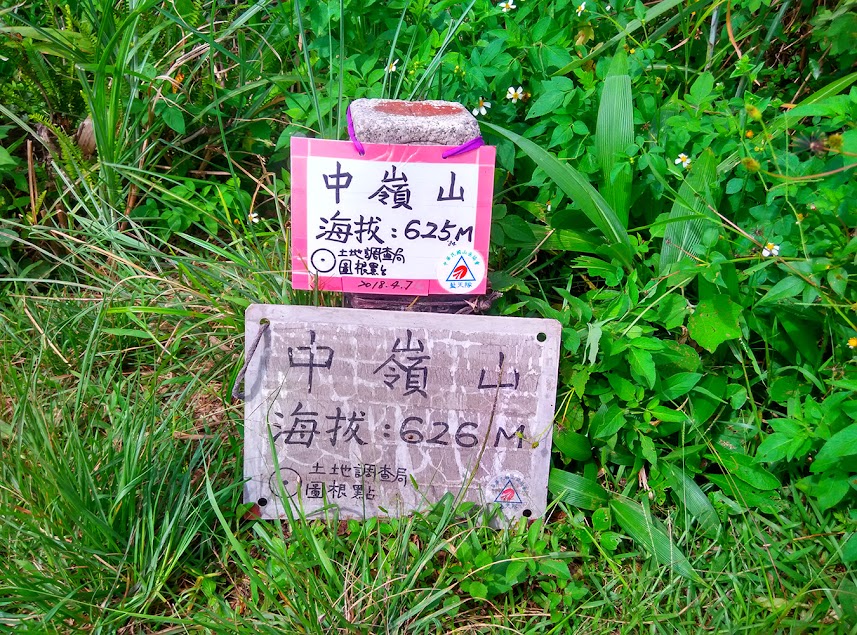 中嶺山
海拔:625M
土地調查局
圖根點
2018.4.7
藍天隊
中嶺山
海拔:626M
土地調查局
圖根點